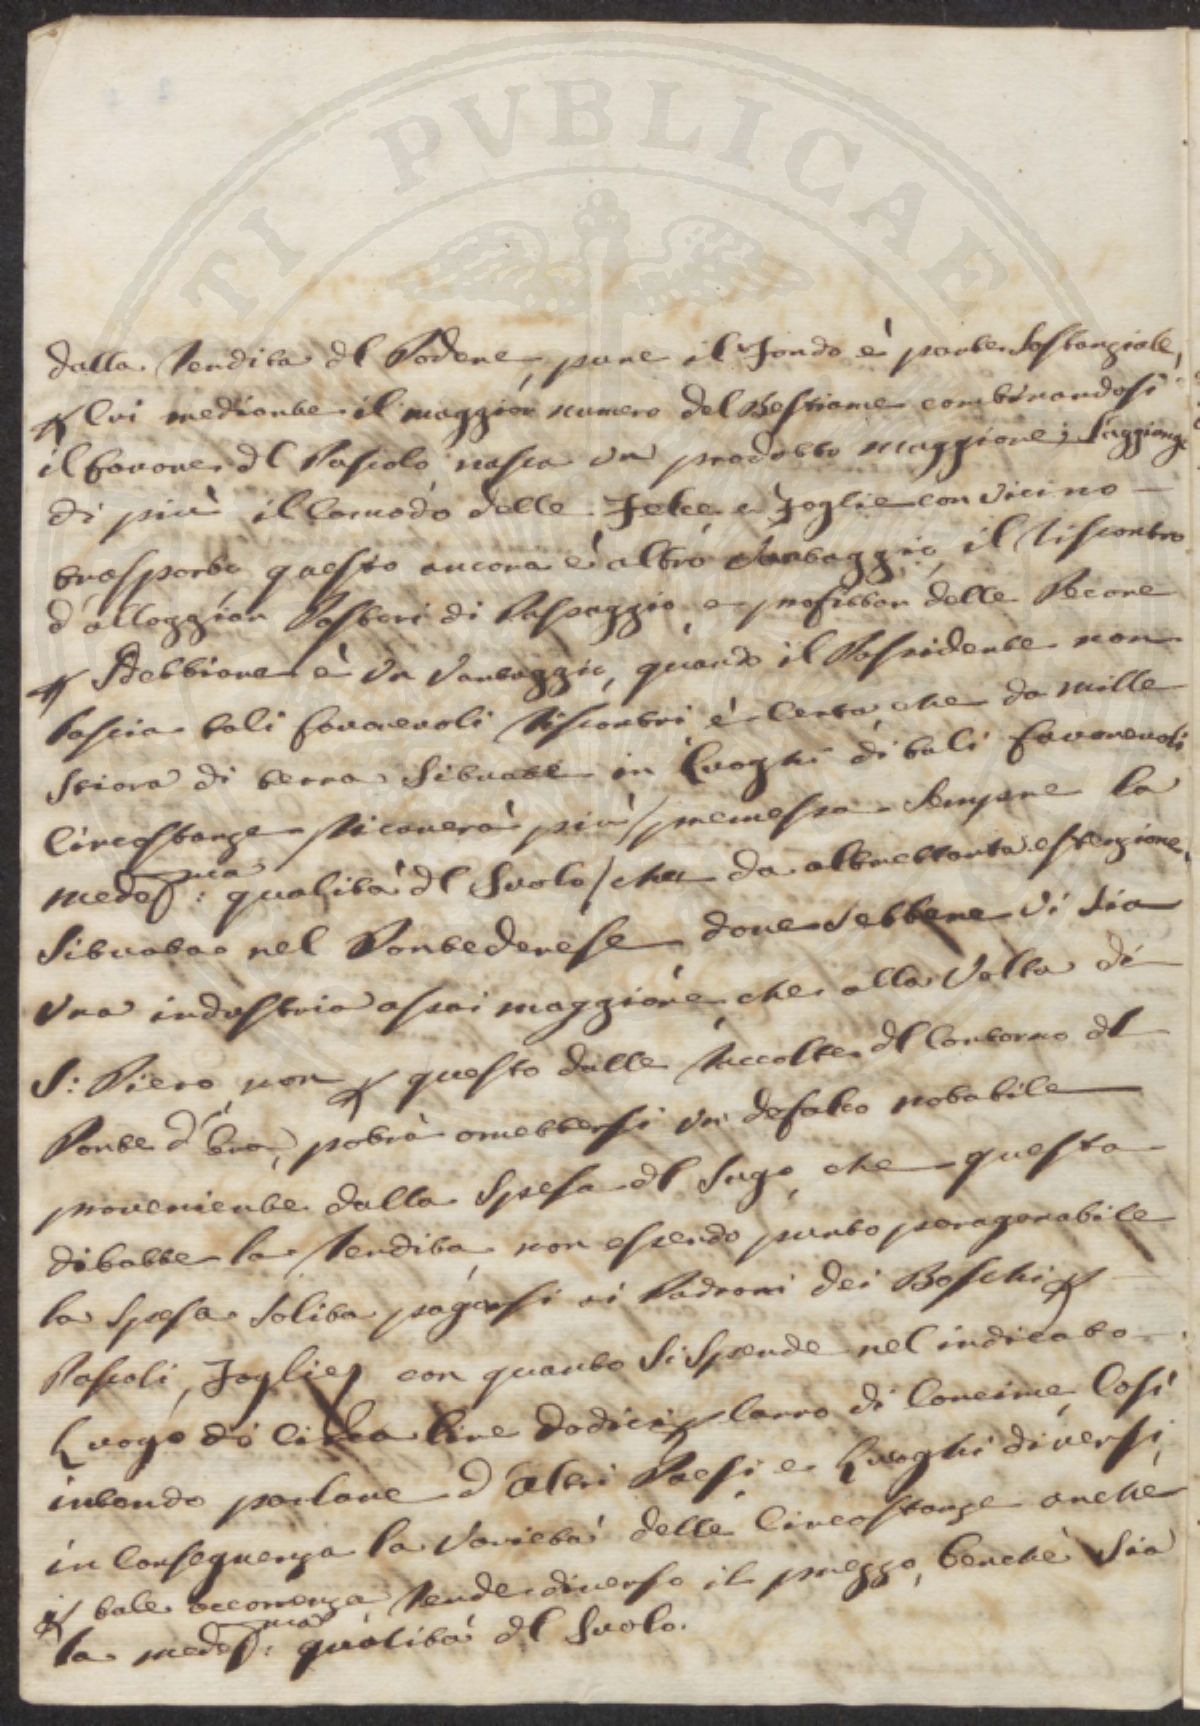 TI PVBLICAE
dalla Rendita dl Podere, pure il Fondo è parte Sostanziale,
lui mediante il maggior numero del Bestiame combinandosi
il favore dl Pascolo nasca un prodotto maggiore; S'aggionge
di più il Comodo delle Felce e Foglie con vicino
trasporto, questo ancora è altro Vantaggio, il riscontro
d'alloggiar Pastori di Passaggio, e profittar delle Pecore
Stebbiare è un Vantaggio, quando il Possidente non
lascia tali favorevoli riscontri è Certo che da mille
Stiora di terra Situate in Luoghi di tali favorevoli
Circostanze ricaverà più /premessa Sempre la
medesma: qualità dl Suolo/ che da altrettanta estenzione
Situata nel Pontederese dove Sebbene Vi Sia
Una industria assai maggiore, che alla Volta di
S: Piero, non questo dalle raccolte dl Contorno dl
Ponte d'Era, potrà omettersi un defalco notabile
proveniente dalla Spesa dl Sugo, che questa
dibatte la Rendita, non essendo punto paragonabile
la Spesa Solita pagarsi ai Padroni dei Boschi
Pascoli, Foglie, con quanto Si Spende nel indicato
Luogo di Circa lire dodici Carro di Concime, Così
intendo parlare d'altri Paesi, e Luoghi diversi,
in Conseguenza la Varietà delle Circostanze anche
tale occorrenza rende diverso il prezzo, benche Sia
la medesma: qualità dl Suolo.